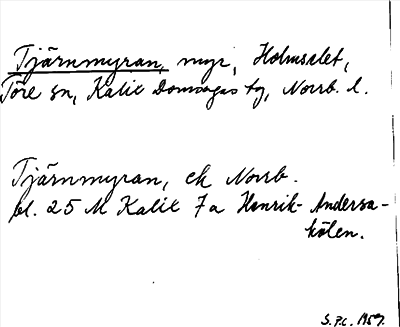 Tjärnmyran, myr, Holmselet,
Töre sn, Kalix Domsagas tg, Norrb. l.
Tjärnmyran, ek Norrb.
bl. 25 M Kalix 7a Henrik-Andersa-
kölen.
S.P.C. 1959.